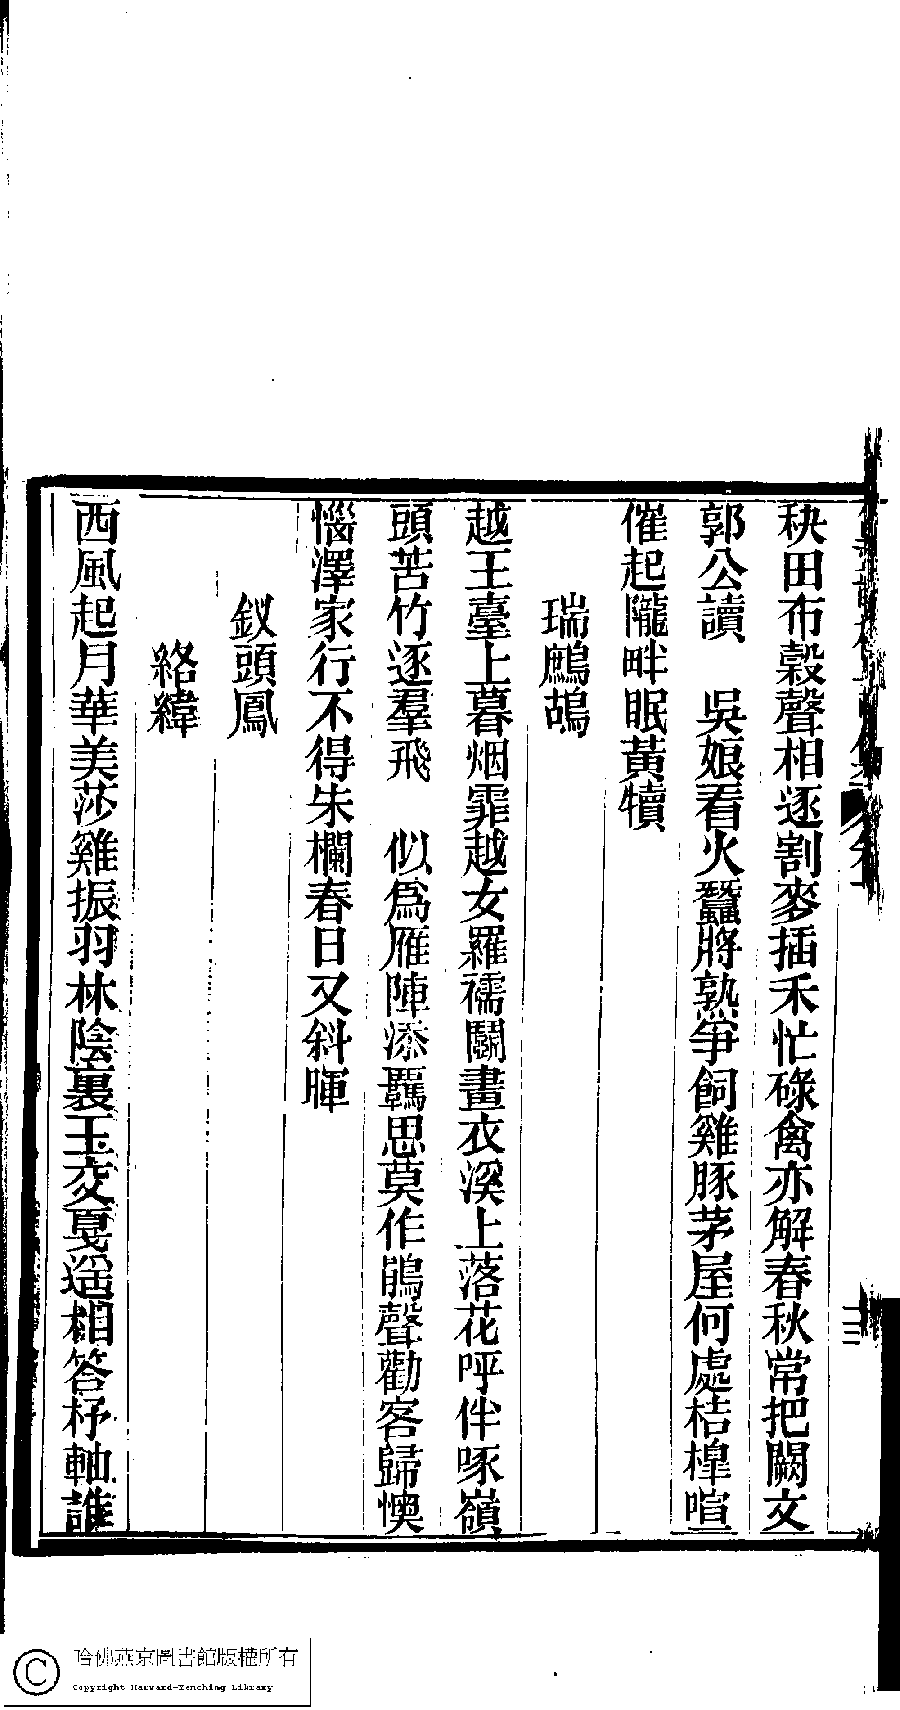 秧田布穀聲相逐割麥插禾忙碌禽亦解春秋常把闕文
郭公讀　吳娘看火蠶將熟爭飼雞豚茅屋何處桔槔喧
催起隴畔眠黃犢
瑞鷓鴣
越王臺上暮烟霏越女羅襦鬬畫衣溪上落花呼伴啄嶺
頭苦竹逐羣飛　似爲雁陣添羈思莫作鵑聲勸客歸懊
惱澤家行不得朱欄春日又斜暉
釵頭鳳
絡緯
西風起月華美莎雞振羽林陰裏玉交戛遥相答杼軸誰
三
哈佛燕京圖書館版權所有
Copyright Harvard-Yenching Library